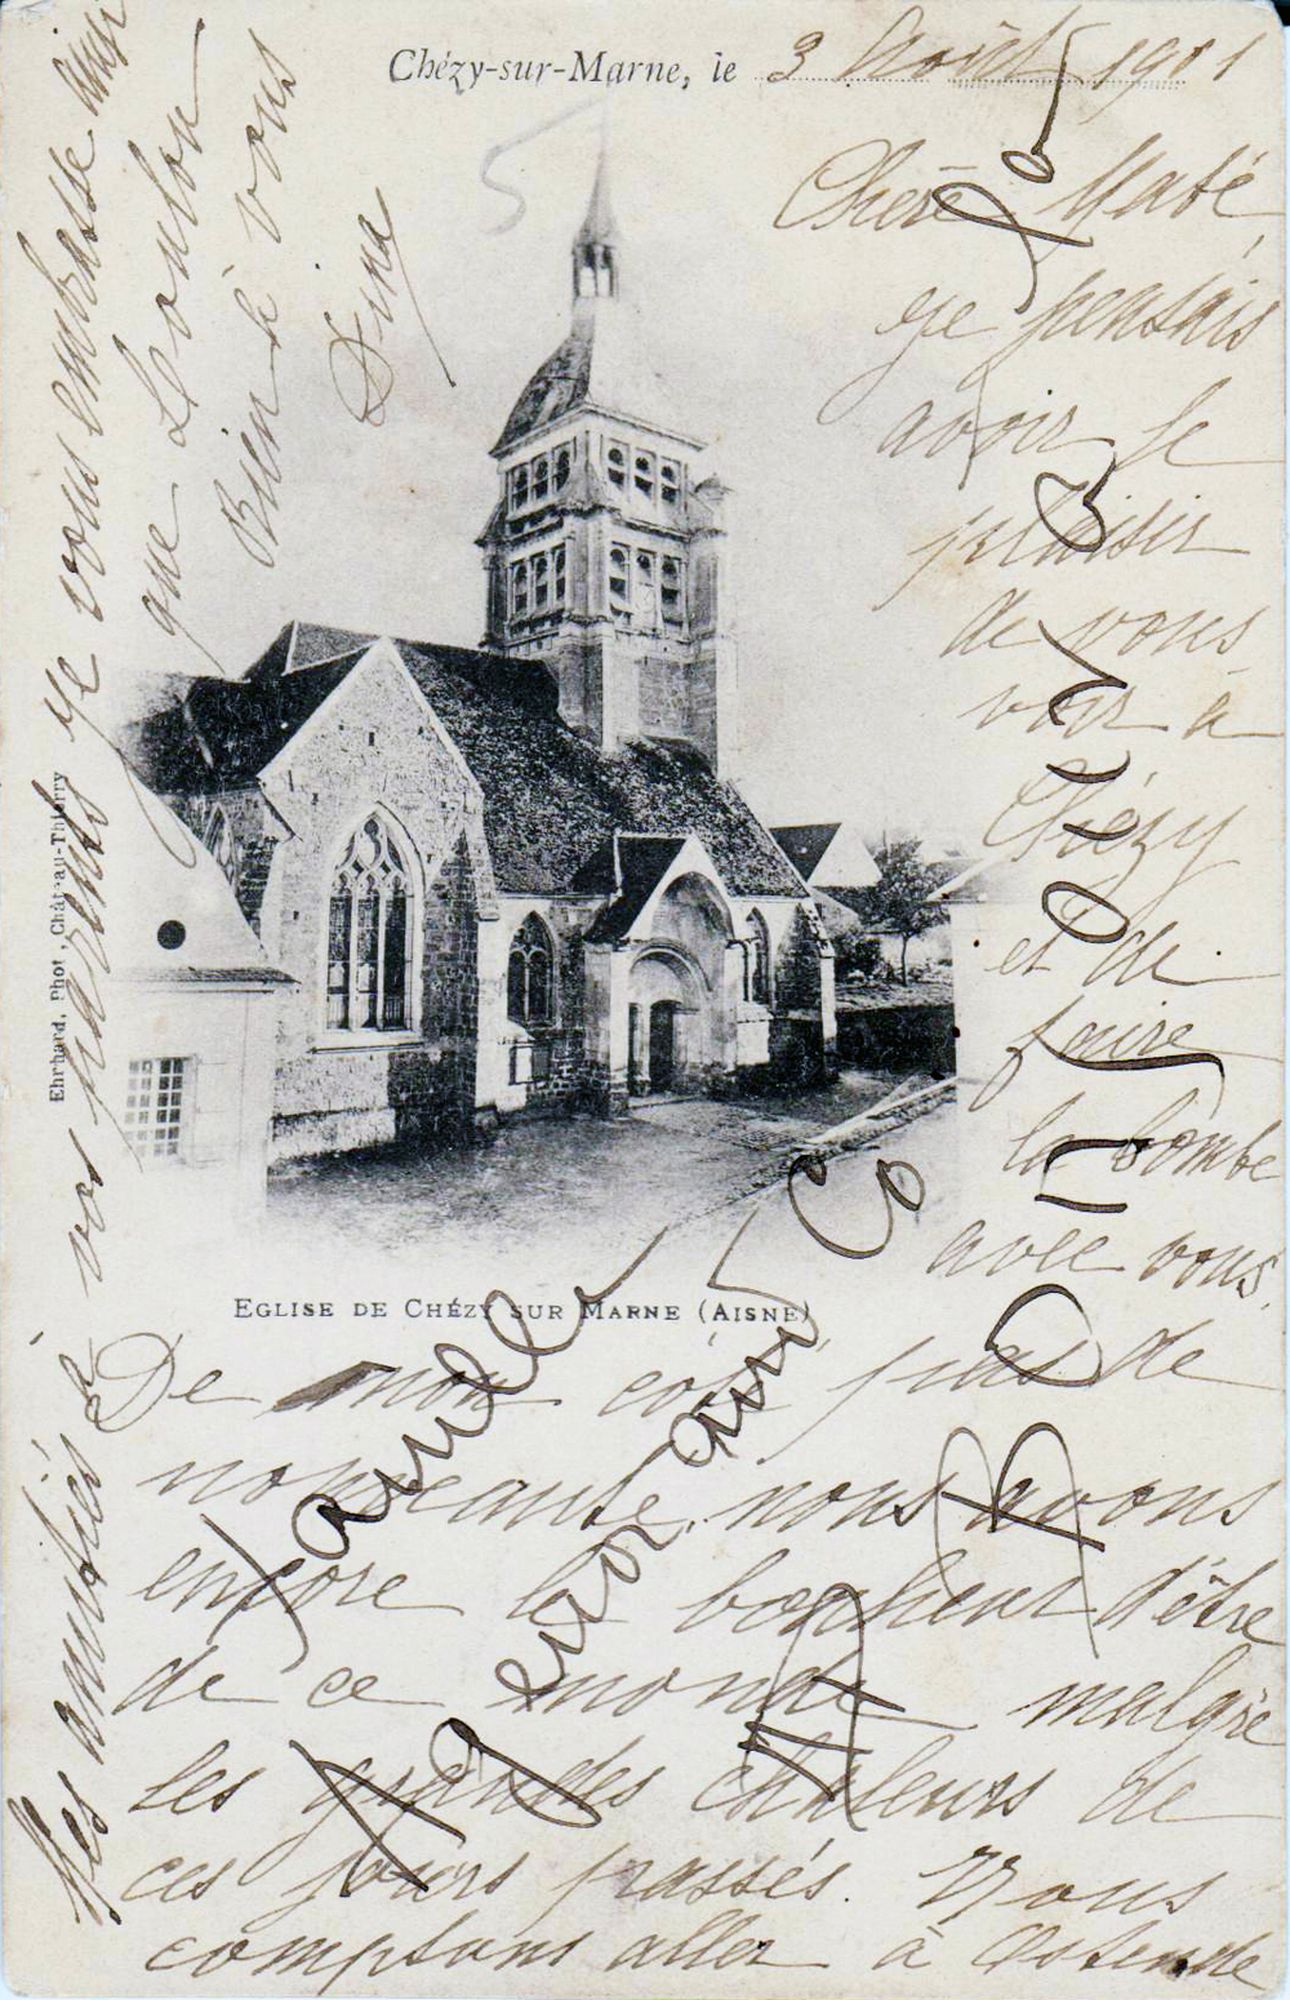 Chézy-sur-Marne, le 3 Août 1901
Chère Maté,
je pensais
avoir le
plaisir
de vous
voir à
Chézy
et de
faire
la bombe
avec vous.
EGLISE DE CHÉZY SUR MARNE (AISNE)
Ehrhard, Phot., Château-Thierry
De mon côté pas de
nouveauté, nous avons
encore le bonheur d'être
de ce monde malgré
les grandes chaleurs de
ces jours passés. Nous
comptons aller à Ostende
famille
Au revoir
Mes amitiés à vos parents je vous embrasse ainsi
que Loulou
Bientôt vous
Dina